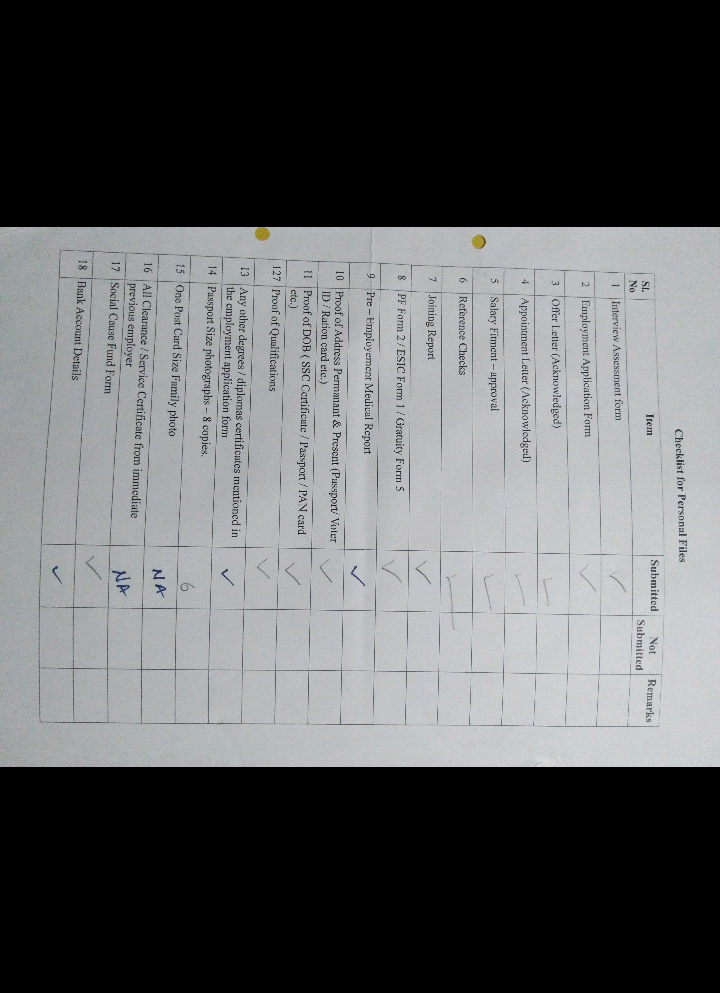 Checklist for Personal Files
SL No Item Submitted Not Submitted Remarks
1 Interview Assessment form ✓
2 Employment Application Form ✓
3 Offer Letter (Acknowledged) ✓
4 Appointment Letter (Acknowledged) ✓
5 Salary Fitment – approval ✓
6 Reference Checks ✓
7 Joining Report ✓
8 PF Form 2 / ESIC Form 1 / Gratuity Form 5 ✓
9 Pre – Employement Medical Report ✓
10 Proof of Address Permanant & Present (Passport/ Voter
ID / Ration card etc.) ✓
11 Proof of DOB ( SSC Certificate / Passport / PAN card
etc.) ✓
127 Proof of Qualifications ✓
13 Any other degrees / diplomas certificates mentioned in
the employment application form ✓
14 Passport Size photographs – 8 copies. 6
15 One Post Card Size Family photo NA
16 All Clearance / Service Certificate from immediate
previous employer NA
17 Social Cause Fund Form ✓
18 Bank Account Details ✓